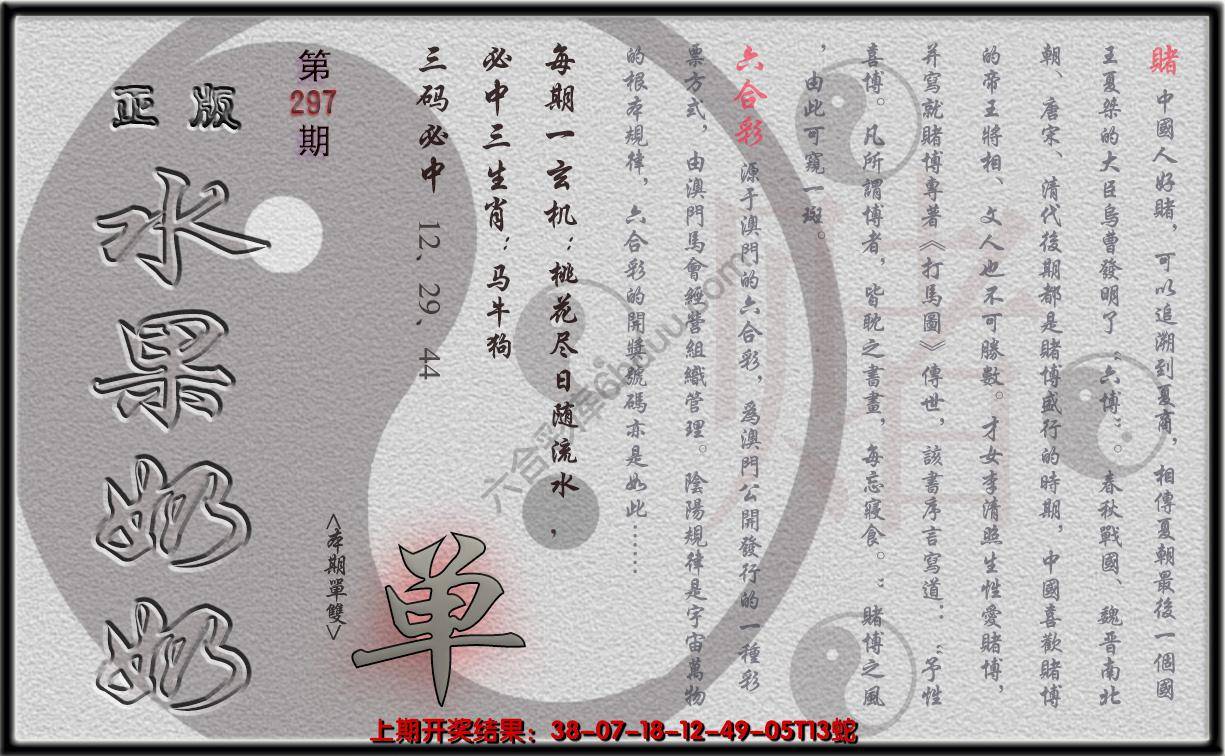 賭 中國人好賭，可以追溯到夏商，相傳夏朝最後一個國
王夏桀的大臣烏曹發明了“六博”。春秋戰國、魏晋南北
朝、唐宋、清代後期都是賭博盛行的時期，中國喜歡賭博
的帝王將相、文人也不可勝數。才女李清照生性愛賭博，
并寫就賭博專著《打馬圖》傳世，該書序言寫道：“予性
喜博。凡所謂博者，皆耽之書畫，每忘寢食。”賭博之風
，由此可窺一斑。
六合彩 源于澳門的六合彩，爲澳門公開發行的一種彩
票方式，由澳門馬會經營組織管理。陰陽規律是宇宙萬物
的根本規律，六合彩的開獎號碼亦是如此……
每期一玄机：桃花尽日随流水，
必中三生肖：马牛狗
三码必中 12、29、44
第
297
期
正版
水果奶奶
<本期單雙>
单
上期开奖结果：38-07-18-12-49-05T13蛇